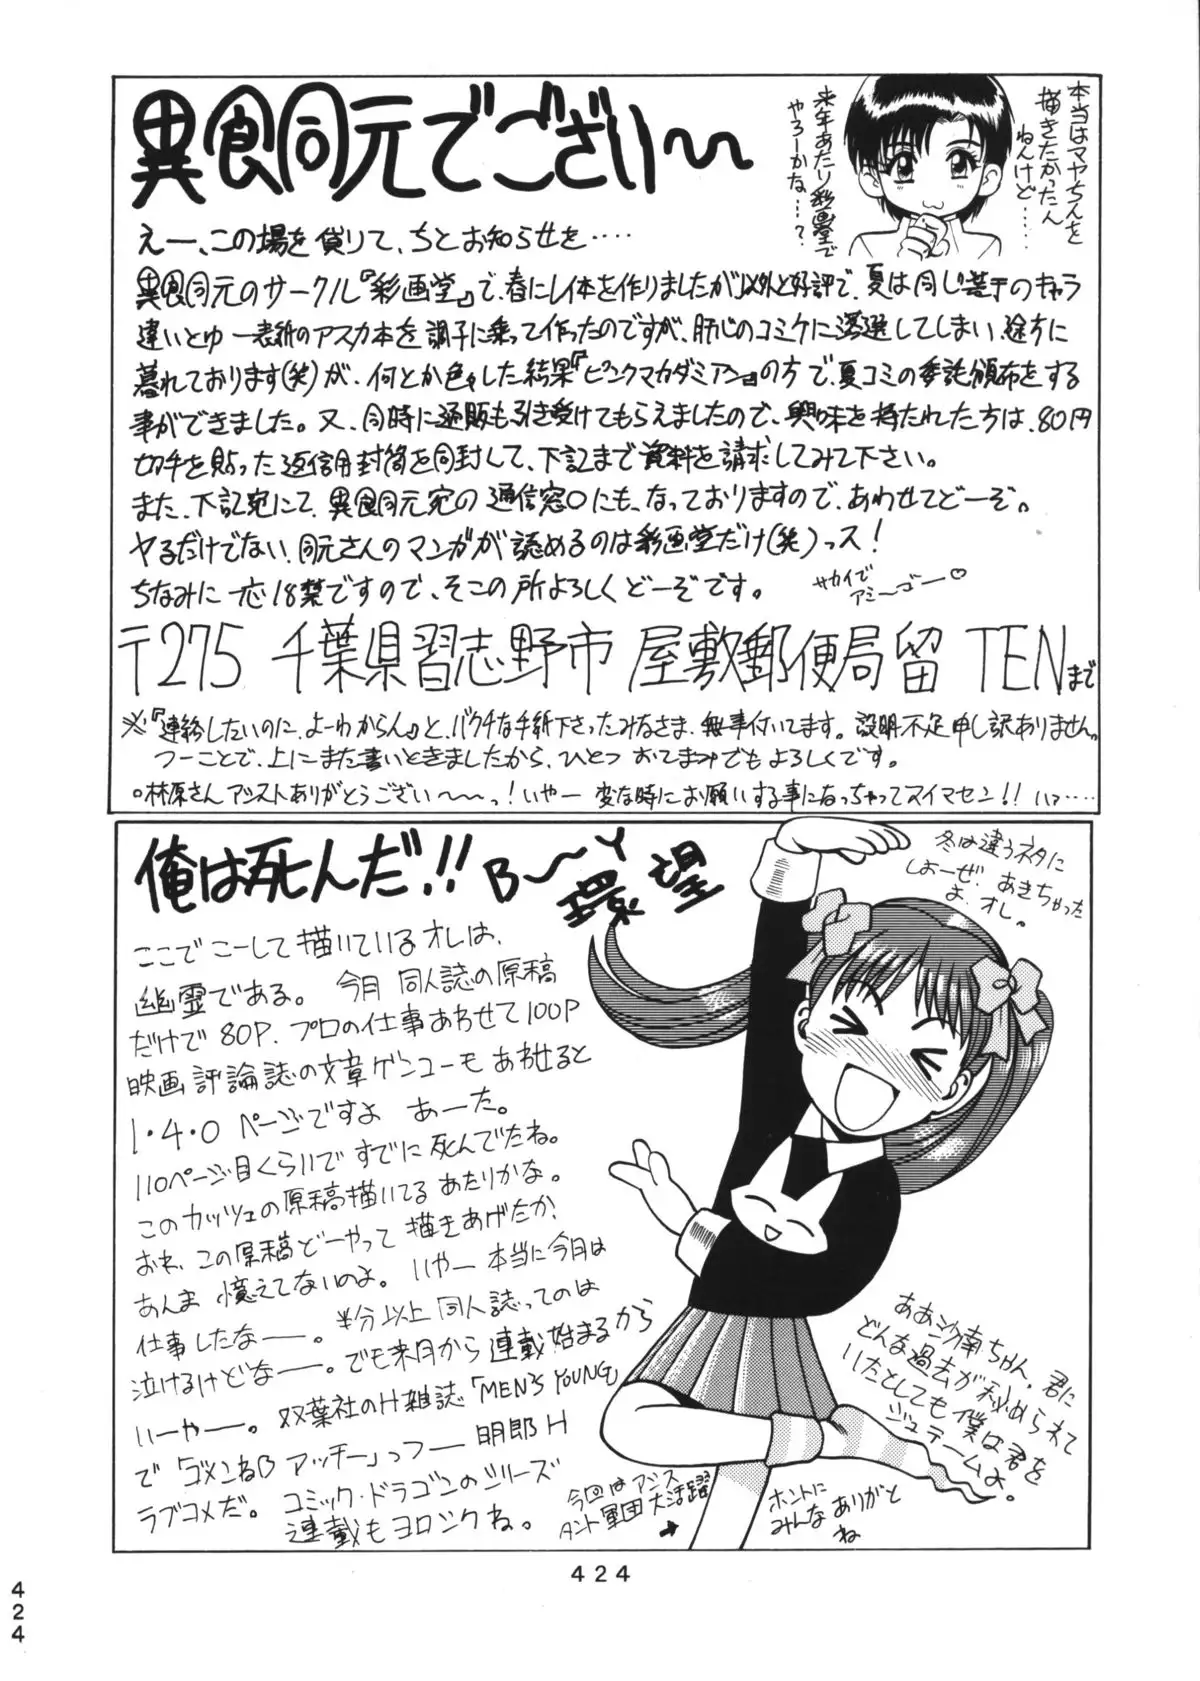 異食同元でござい〜
本当はマヤちんを
描きたかったん
ねんけど……
来年あたり彩画堂で
やろーかな…？
えー、この場を貸りて、ちとお知らせを‥‥
異食同元のサークル『彩画堂』で、春にレイ本を作りましたが以外と好評で、夏は同じ苦手のキャラ
違いとゆー表紙のアスカ本を調子に乗って作ったのですが、肝心のコミケに落選してしまい、途方に
暮れております(笑)が、何とか色々した結果『ピンクマカダミアン』の方で、夏コミの委託頒布をする
事ができました。又、同時に通販も引き受けてもらえましたので、興味を持たれた方は、80円
切手を貼った返信用封筒を同封して、下記まで資料を請求してみて下さい。
また、下記宛にて、異食同元宛の通信窓口にも、なっておりますので、あわせてどーぞ。
ヤるだけでない、同元さんのマンガが読めるのは彩画堂だけ(笑)っス！
ちなみに一応18禁ですので、そこの所よろしくどーぞです。
サカイで
アミ〜ゴー♡
〒275 千葉県習志野市 屋敷郵便局留 TENまで
※『連絡したいのに、よーわからん』と、バクチな手紙下さったみなさま、無事付いてます。説明不足申し訳ありません。
つーことで、上にまた書いときましたから、ひとつ おてまみでもよろしくです。
○林原さんアシストありがとうござい〜〜っ！いやー 変な時にお願いする事になっちゃってスイマセン!! いっ‥‥
俺は死んだ!! B〜Y
環望
冬は違うネタに
しよーぜ、あきちゃった
よ、オレ。
ここでこーして描いているオレは、
幽霊である。 今月 同人誌の原稿
だけで 80P. プロの仕事あわせて100P
映画評論誌の文章ゲンコーもあわせると
1・4・0 ページですよ あーた。
110ページ目くらいですでに死んでたね。
このカッツェの原稿描いてるあたりかな。
おれ、この原稿どーやって描きあげたか、
あんま憶えてないのよ。 いやー本当に今月は
仕事したなー。 半分以上同人誌ってのは
泣けるけどなー。でも来月から連載始まるから
いーやー。双葉社のH雑誌「MEN'S YOUNG」
で「ゴメンねB アッチー」っつー 明郎H
ラブコメだ。 コミック・ドラゴンのシリーズ
連載もヨロシクね。
ああ沙南ちゃん、君に
どんな過去が秘められて
いたとしても僕は君を
ジュテームよ。
今回はアシス
タント軍団大活躍
→
ホントに
みんなありがと
ね
424
424